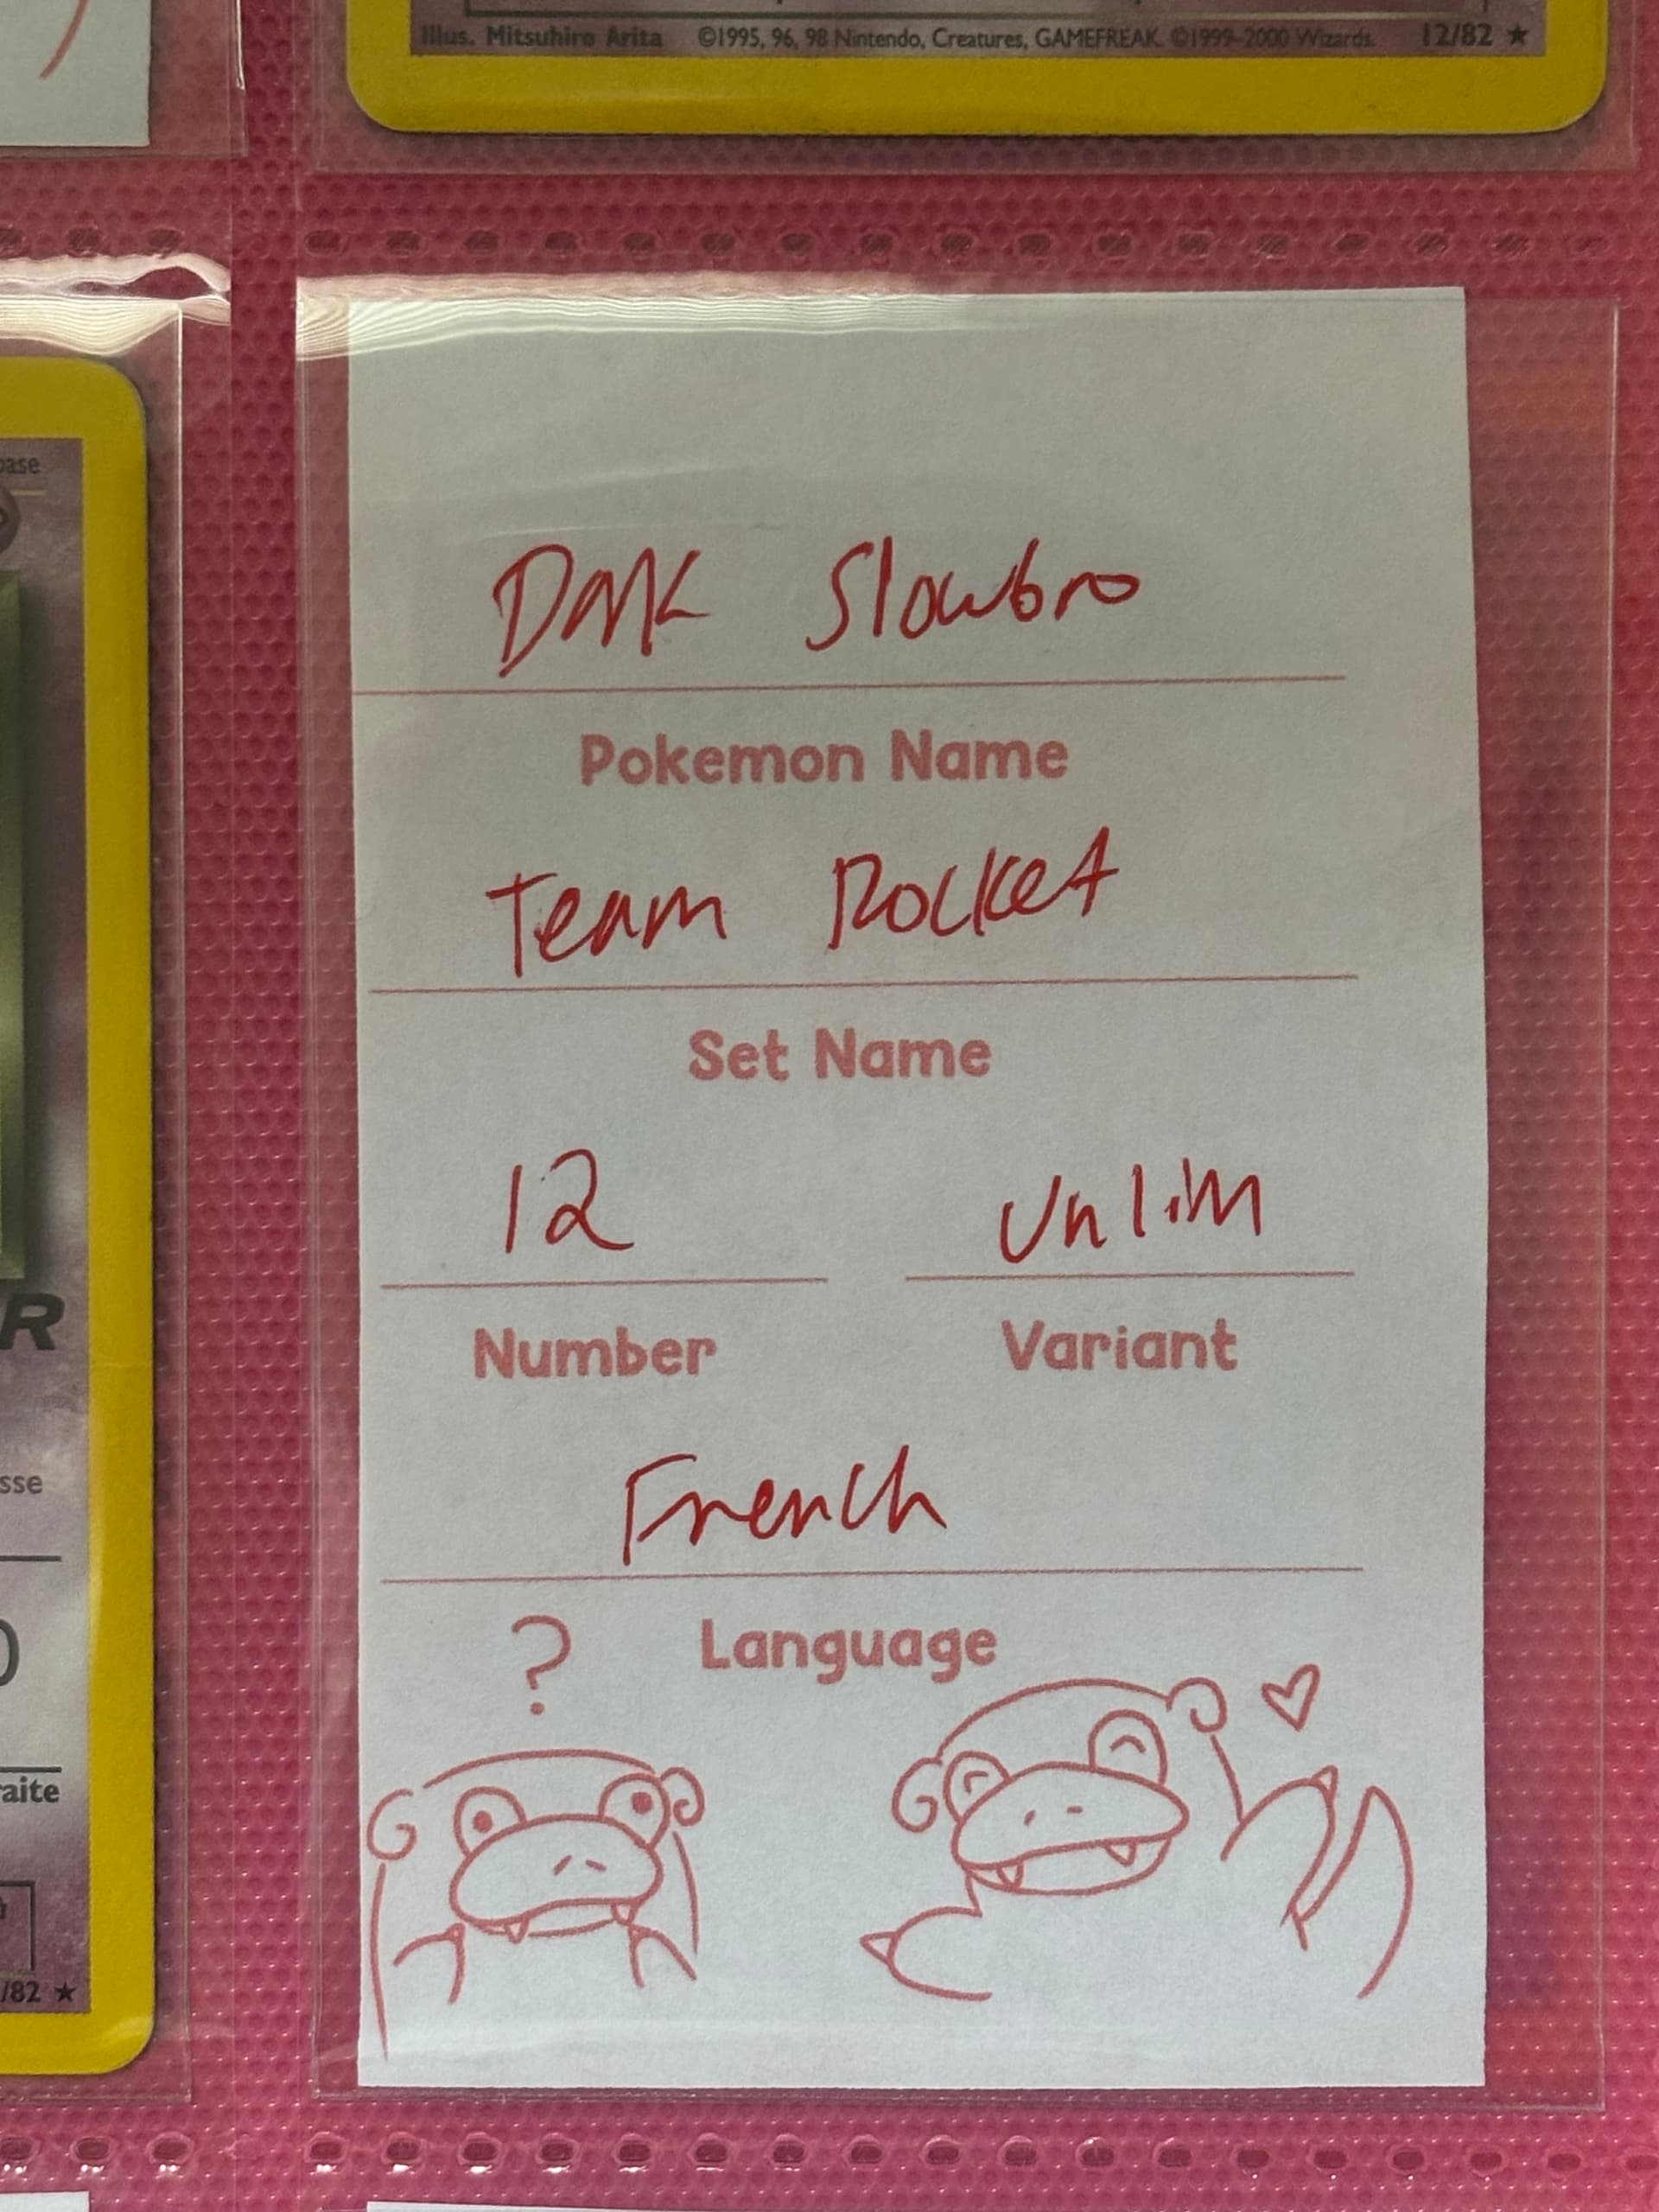 Illus. Mitsuhiro Arita ©1995, 96, 98 Nintendo, Creatures, GAMEFREAK. ©1999-2000 Wizards. 12/82 ★
Dark Slowbro
Pokemon Name
Team Rocket
Set Name
12 Unlim
Number Variant
French
? Language
R
/82 ★